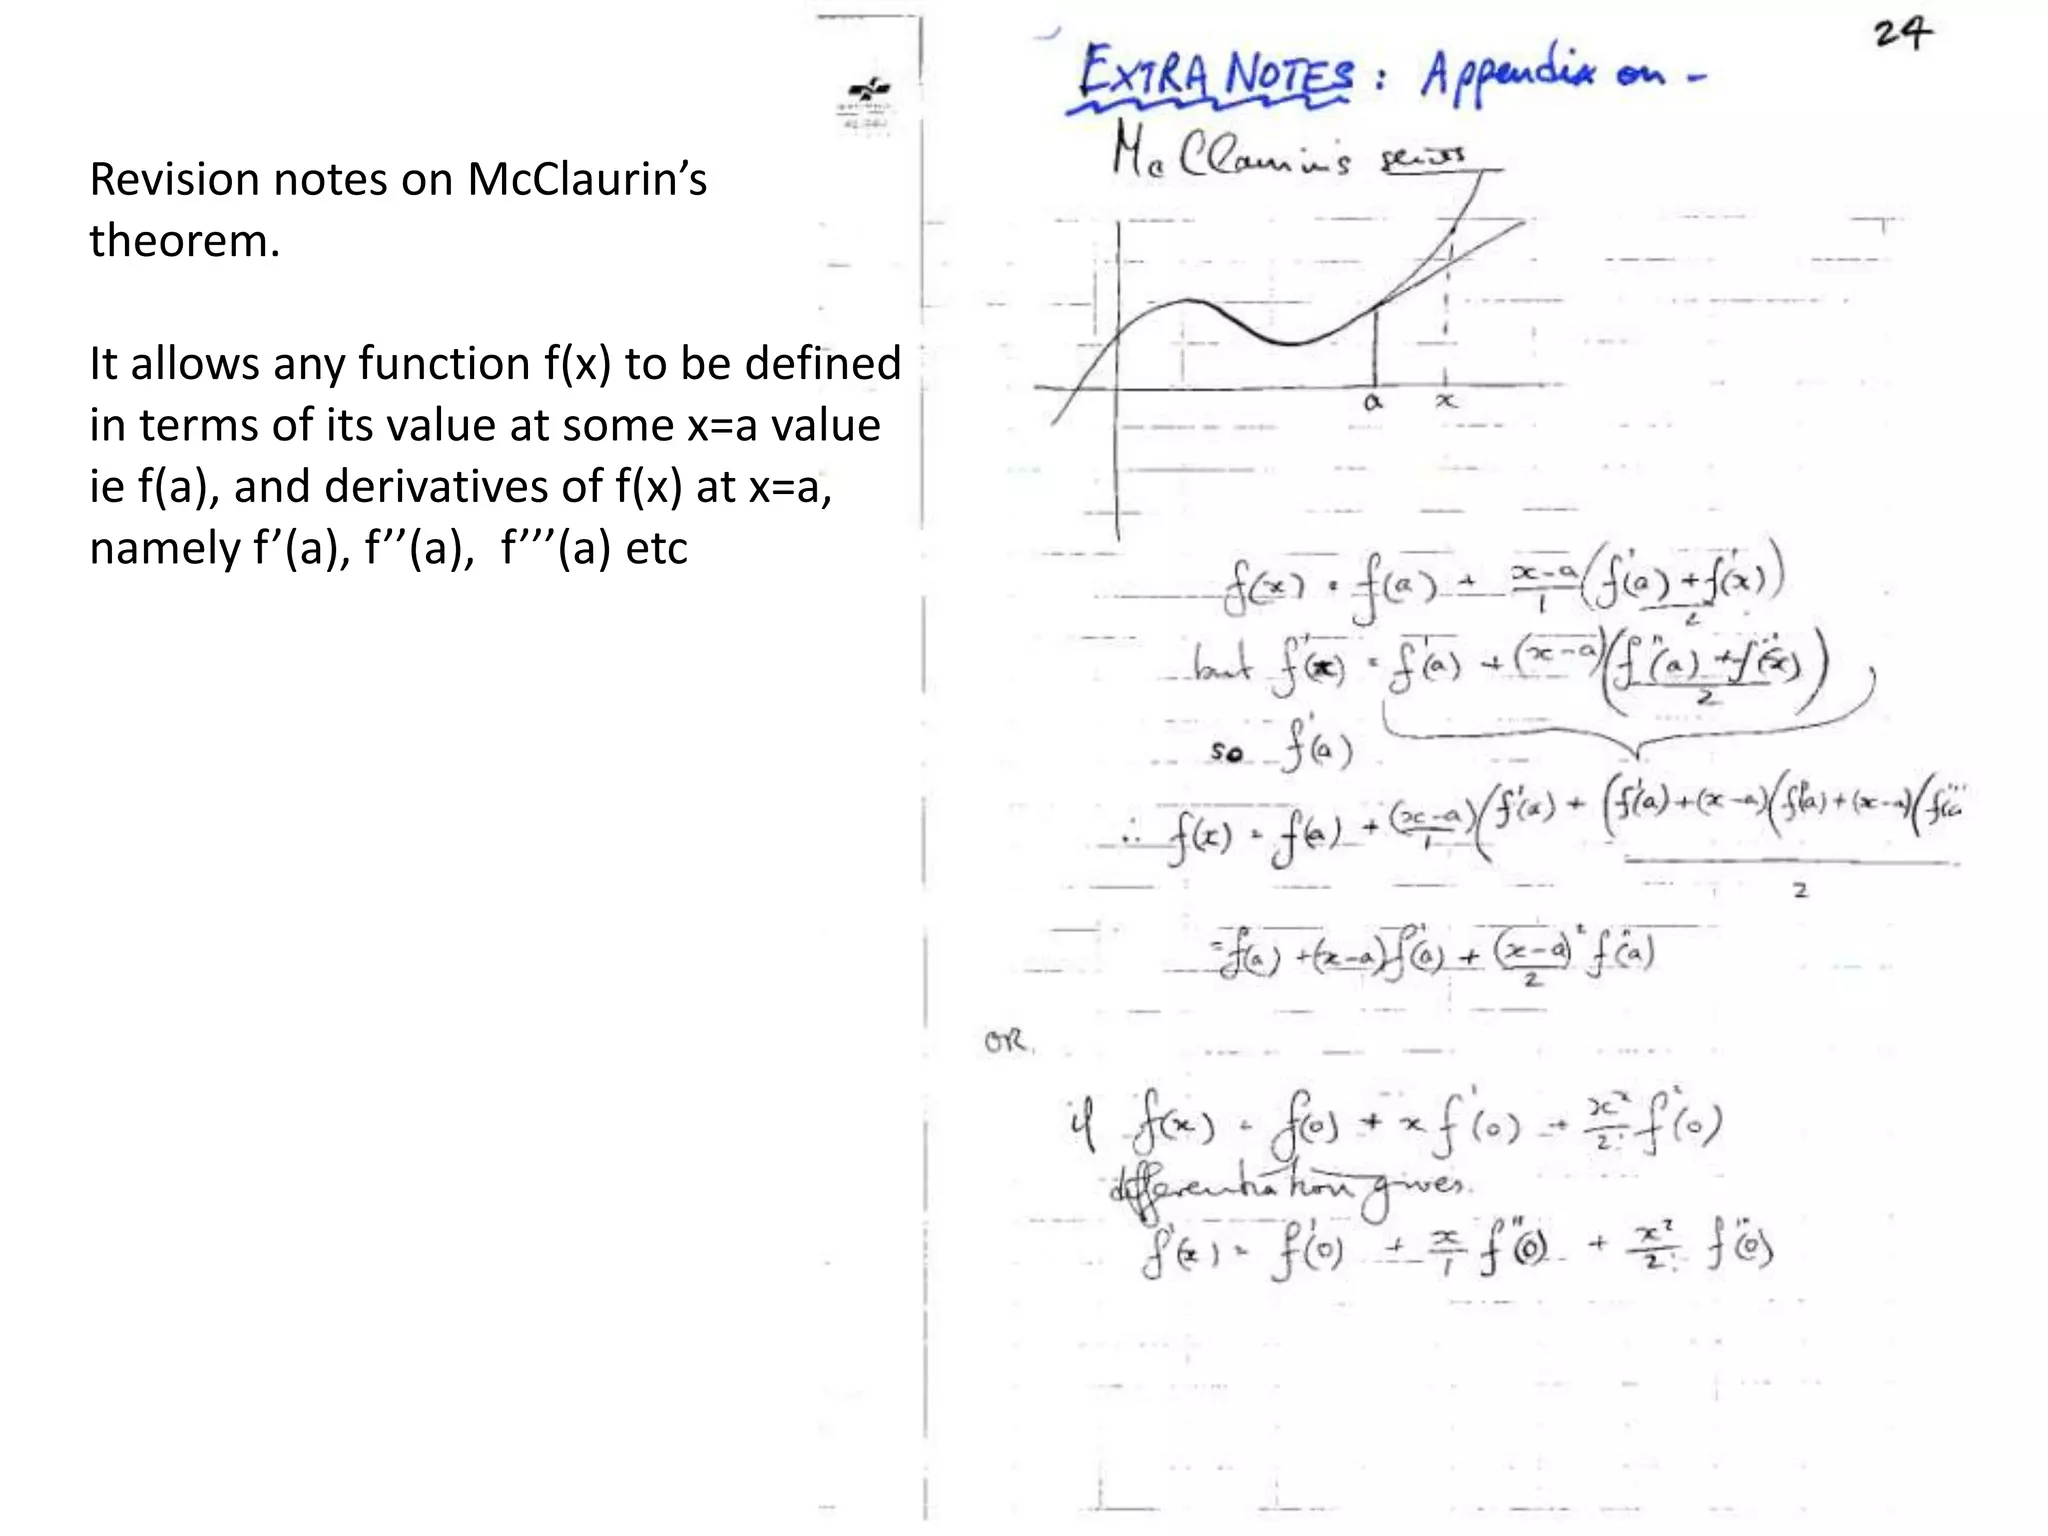 Revision notes on McClaurin’s
theorem.
It allows any function f(x) to be defined
in terms of its value at some x=a value
ie f(a), and derivatives of f(x) at x=a,
namely f’(a), f’’(a),  f’’’(a) etc
24
EXTRA NOTES : Appendix on -
McClaurin's series
a x
f(x) = f(a) + x-a/1 (f'(a) + f'(x)/2)
but f'(x) = f'(a) + (x-a)(f''(a) + f''(x)/2)
so f'(a)
∴ f(x) = f(a) + (x-a)/1 (f'(a) + (f'(a)+(x-a)(f''(a)+(x-a)(f'''(a / 2
= f(a) + (x-a)f'(a) + (x-a)²/2 f''(a)
OR.
if f(x) = f(0) + x f'(0) + x²/2! f²(0)
differentiation gives.
f'(x) = f'(0) + x/1 f''(0) + x²/2! f'''(0)